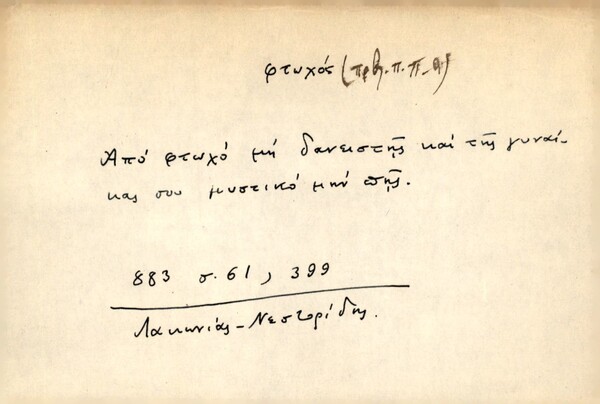 φτωχός
Από φτωχό μή δανειστῆς καί τῆς γυναί-
κας σου μυστικό μήν πῆς.
883 σ. 61, 399
Λακωνίας - Νεστορίδης.